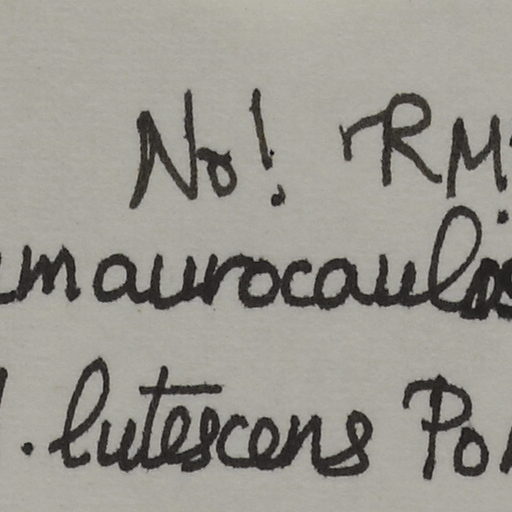 No! RM
maurocaulos
. lutescens Po